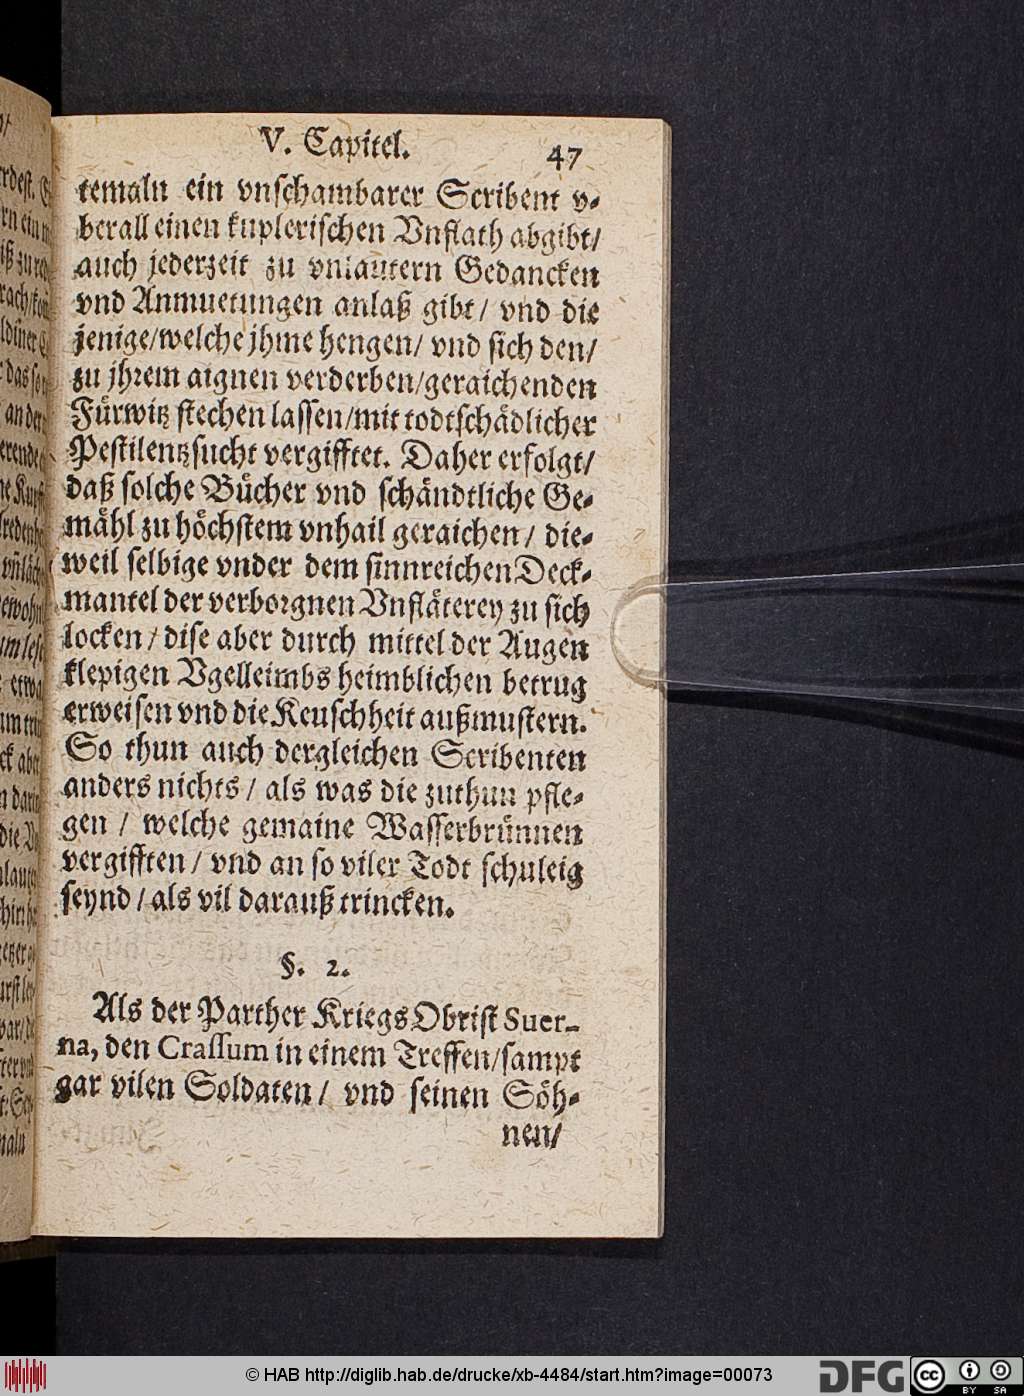 V. Capitel.
47
temaln ein vnschambarer Scribent v-
berall einen kuplerischen Vnflath abgibt/
auch jederzeit zu vnlautern Gedancken
vnd Anmuetungen anlaß gibt / vnd die
jenige/welche jhme hengen/ vnd sich den/
zu jhrem aignen verderben/geraichenden
Fürwitz stechen lassen/mit todtschädlicher
Pestilentzsucht vergifftet. Daher erfolgt/
daß solche Bücher vnd schändtliche Ge-
mähl zu höchstem vnhail geraichen / die-
weil selbige vnder dem sinnreichen Deck-
mantel der verborgnen Vnfläterey zu sich
locken / dise aber durch mittel der Augen
klepigen Vgelleimbs heimblichen betrug
erweisen vnd die Keuschheit außmustern.
So thun auch dergleichen Scribenten
anders nichts / als was die zuthun pfle-
gen / welche gemaine Wasserbrünnen
vergifften / vnd an so viler Todt schuleig
seynd / als vil darauß trincken.
§. 2.
Als der Parther Kriegs Obrist Suer-
na, den Crassum in einem Treffen/sampt
gar vilen Soldaten / vnd seinen Söh-
nen/
© HAB http://diglib.hab.de/drucke/xb-4484/start.htm?image=00073
DFG
cc
BY SA